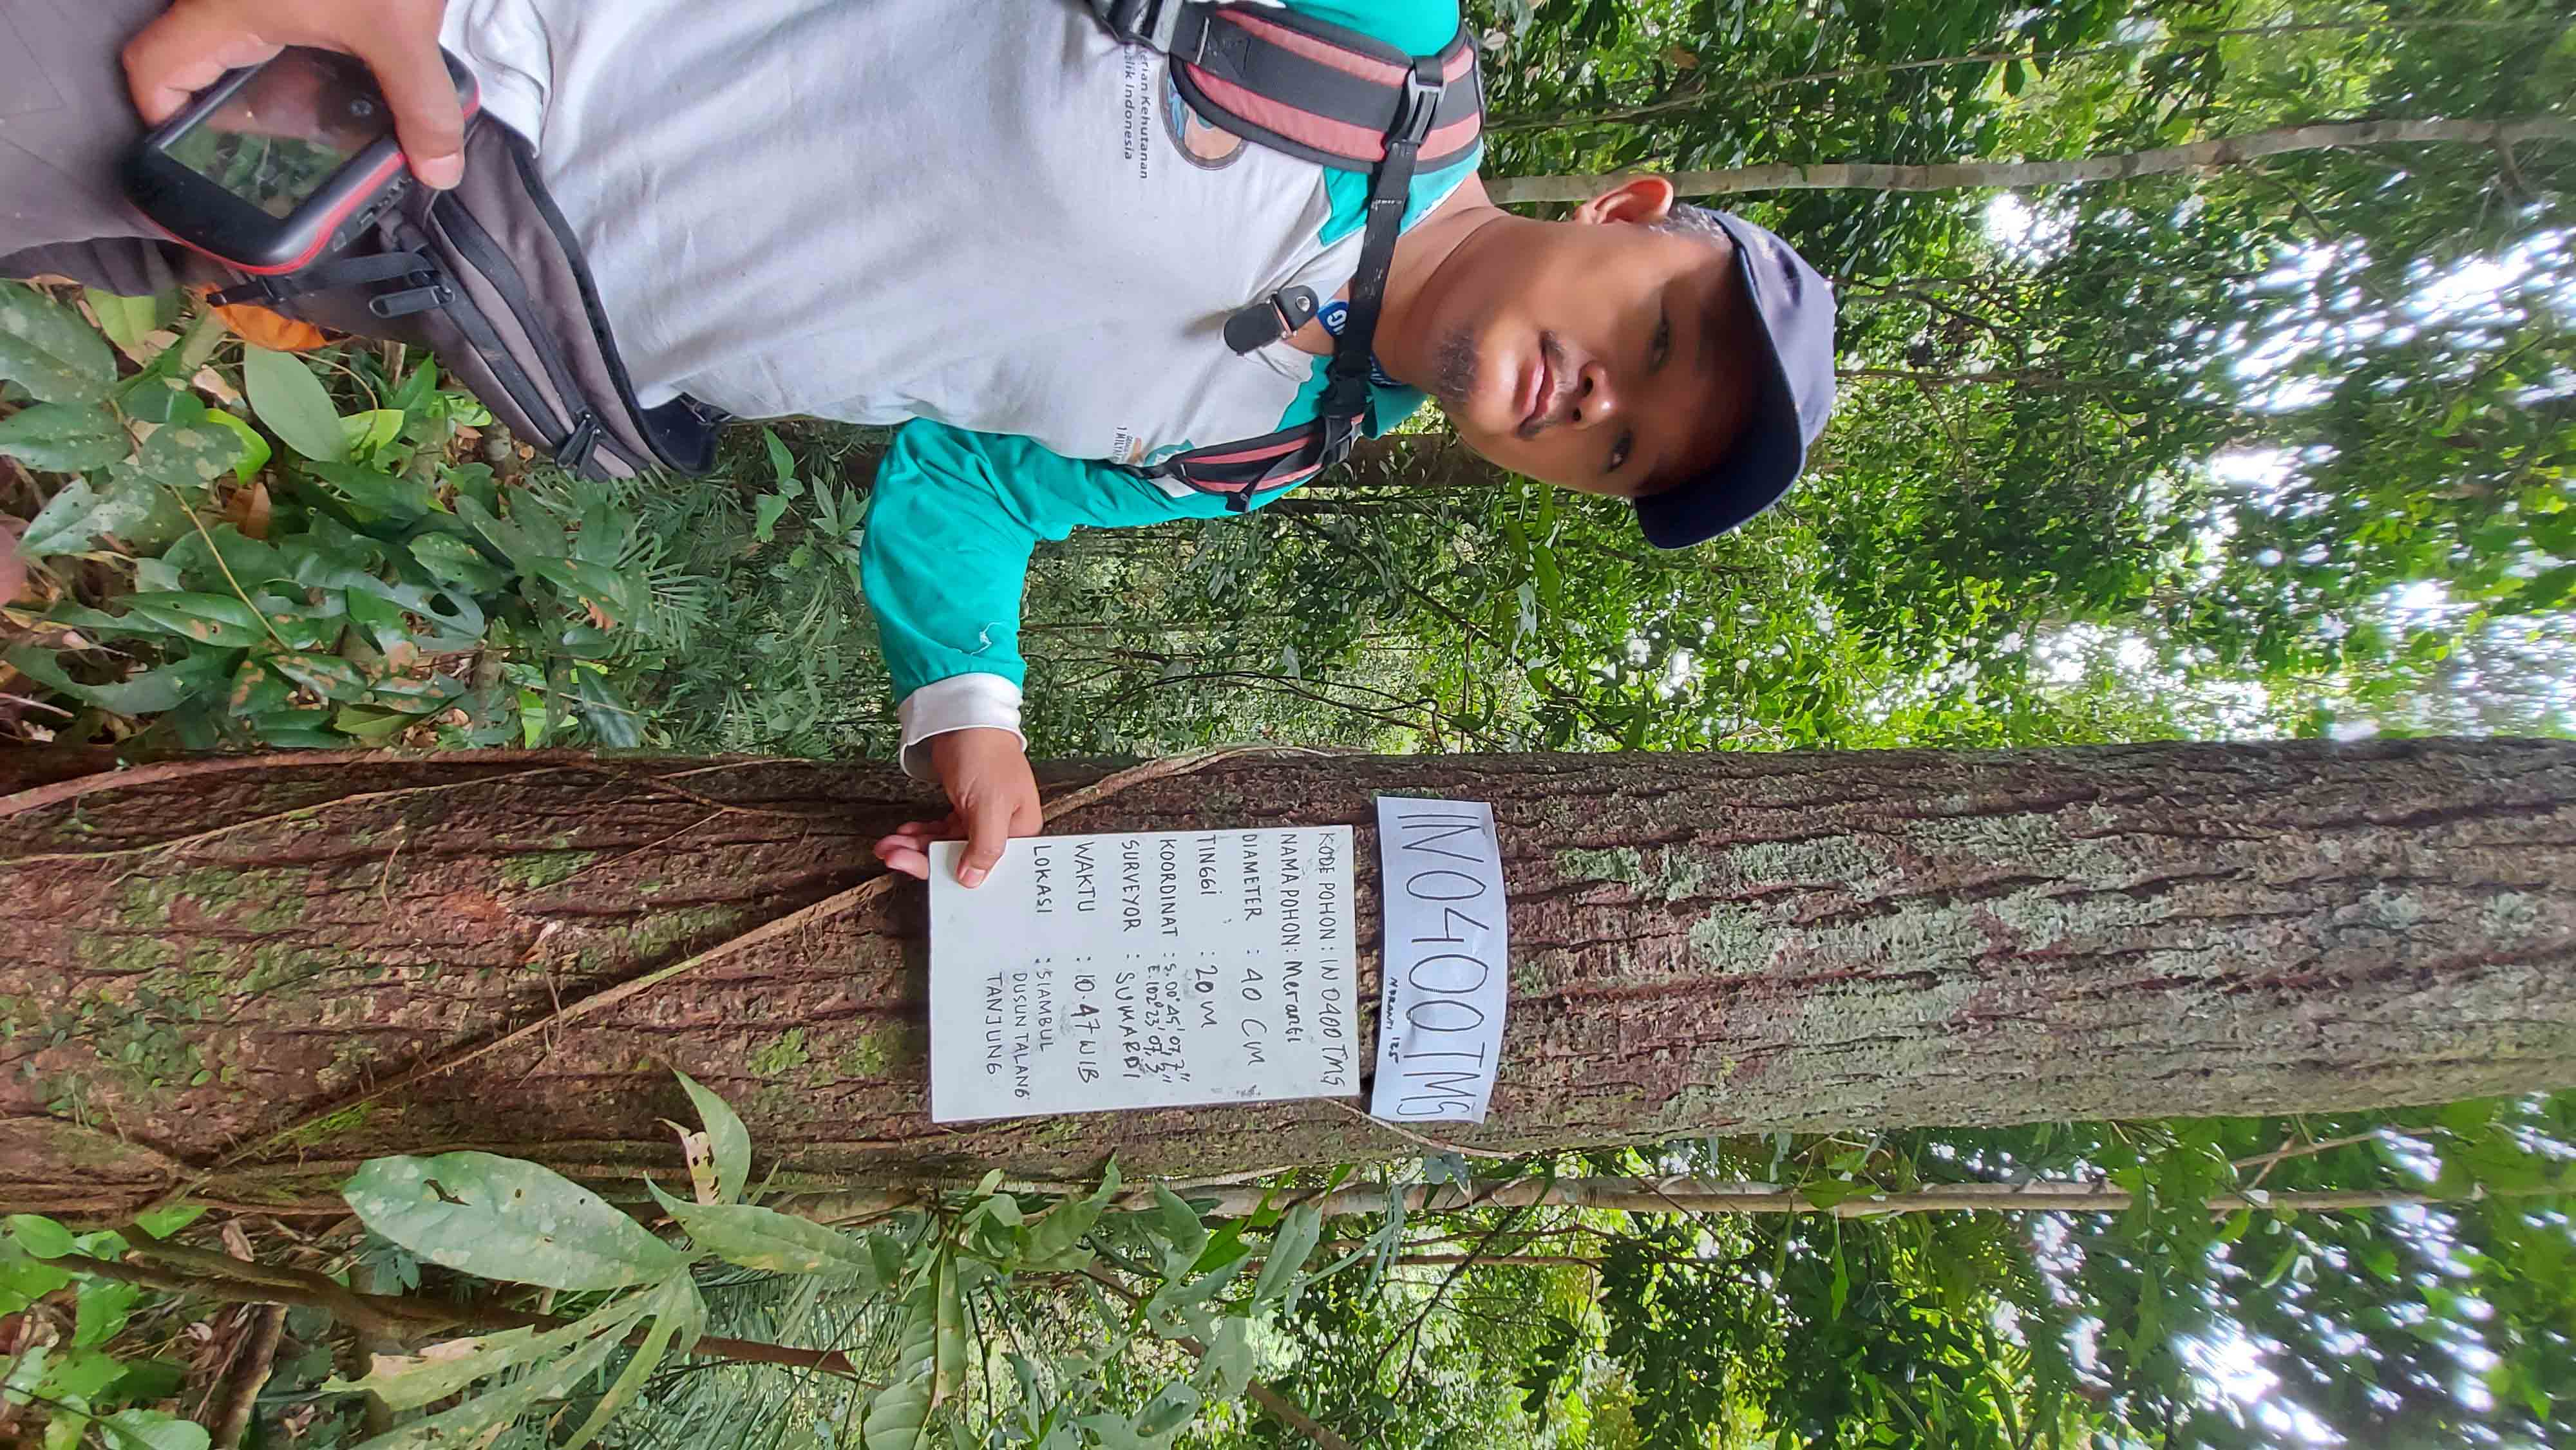 IN0400TMS
MERANTI 125
KODE POHON : IN 0400 TMS
NAMA POHON : Meranti
DIAMETER : 40 CM
TINGGI : 20 M
KOORDINAT : S. 00° 45' 07,7"
E. 102° 23' 07, 3"
SURVEYOR : SUMARDI
WAKTU : 10.47 WIB
LOKASI : SIAMBUL
DUSUN TALANG
TANJUNG
erian Kehutanan
lik Indonesia